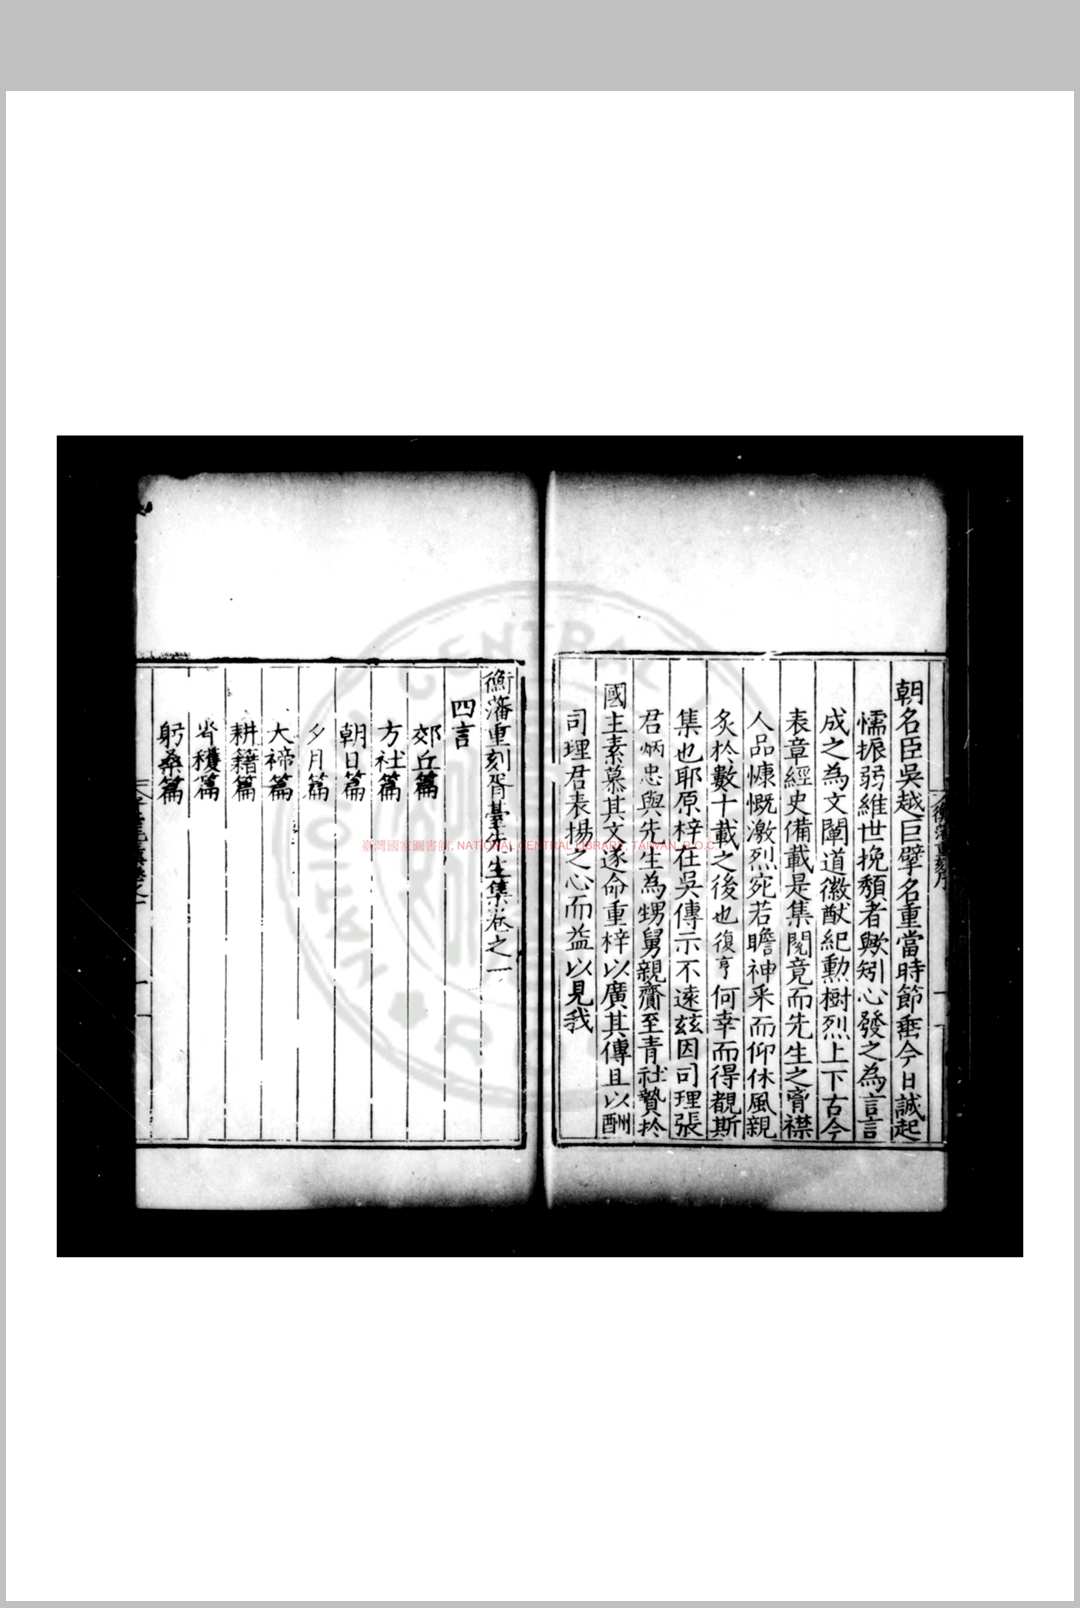 朝名臣吳越巨擘名重當時節垂今日誠起
懦振弱維世挽頹者歟矧心發之為言言
成之為文闡道徽猷紀勳樹烈上下古今
表章經史備載是集閱竟而先生之胷襟
人品慷慨激烈宛若瞻神采而仰休風親
炙於數十載之後也復亨何幸而得覩斯
集也耶原梓在吳傳示不遠茲因司理張
君炳忠與先生為甥舅親齎至青社贄於
國主素慕其文遂命重梓以廣其傳且以酬
司理君表揚之心而益以見我
衡藩重刻胥臺先生集卷之一
四言
郊丘篇
方社篇
朝日篇
夕月篇
大禘篇
耕籍篇
省穫篇
躬桑篇
臺灣國家圖書館, NATIONAL CENTRAL LIBRARY, TAIWAN, R.O.C.